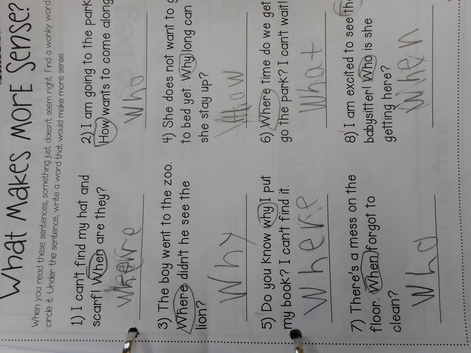 What MAKES MORE SENSE?
When you read these sentences, something just doesn't seem right. Find a wonky word
circle it. Under the sentence, write a word that would make more sense
1) I can't find my hat and
scarf! When are they?
Where
2) I am going to the park
How wants to come along
Who
3) The boy went to the zoo.
Where didn't he see the
lion?
Why
4) She does not want to
to bed yet. Why long can
she stay up?
How
5) Do you know why I put
my book? I can't find it.
Where
6) Where time do we get
go the park? I can't wait!
What
7) There's a mess on the
floor. When forgot to
clean?
Who
8) I am excited to see the
babysitter! Who is she
getting here?
When